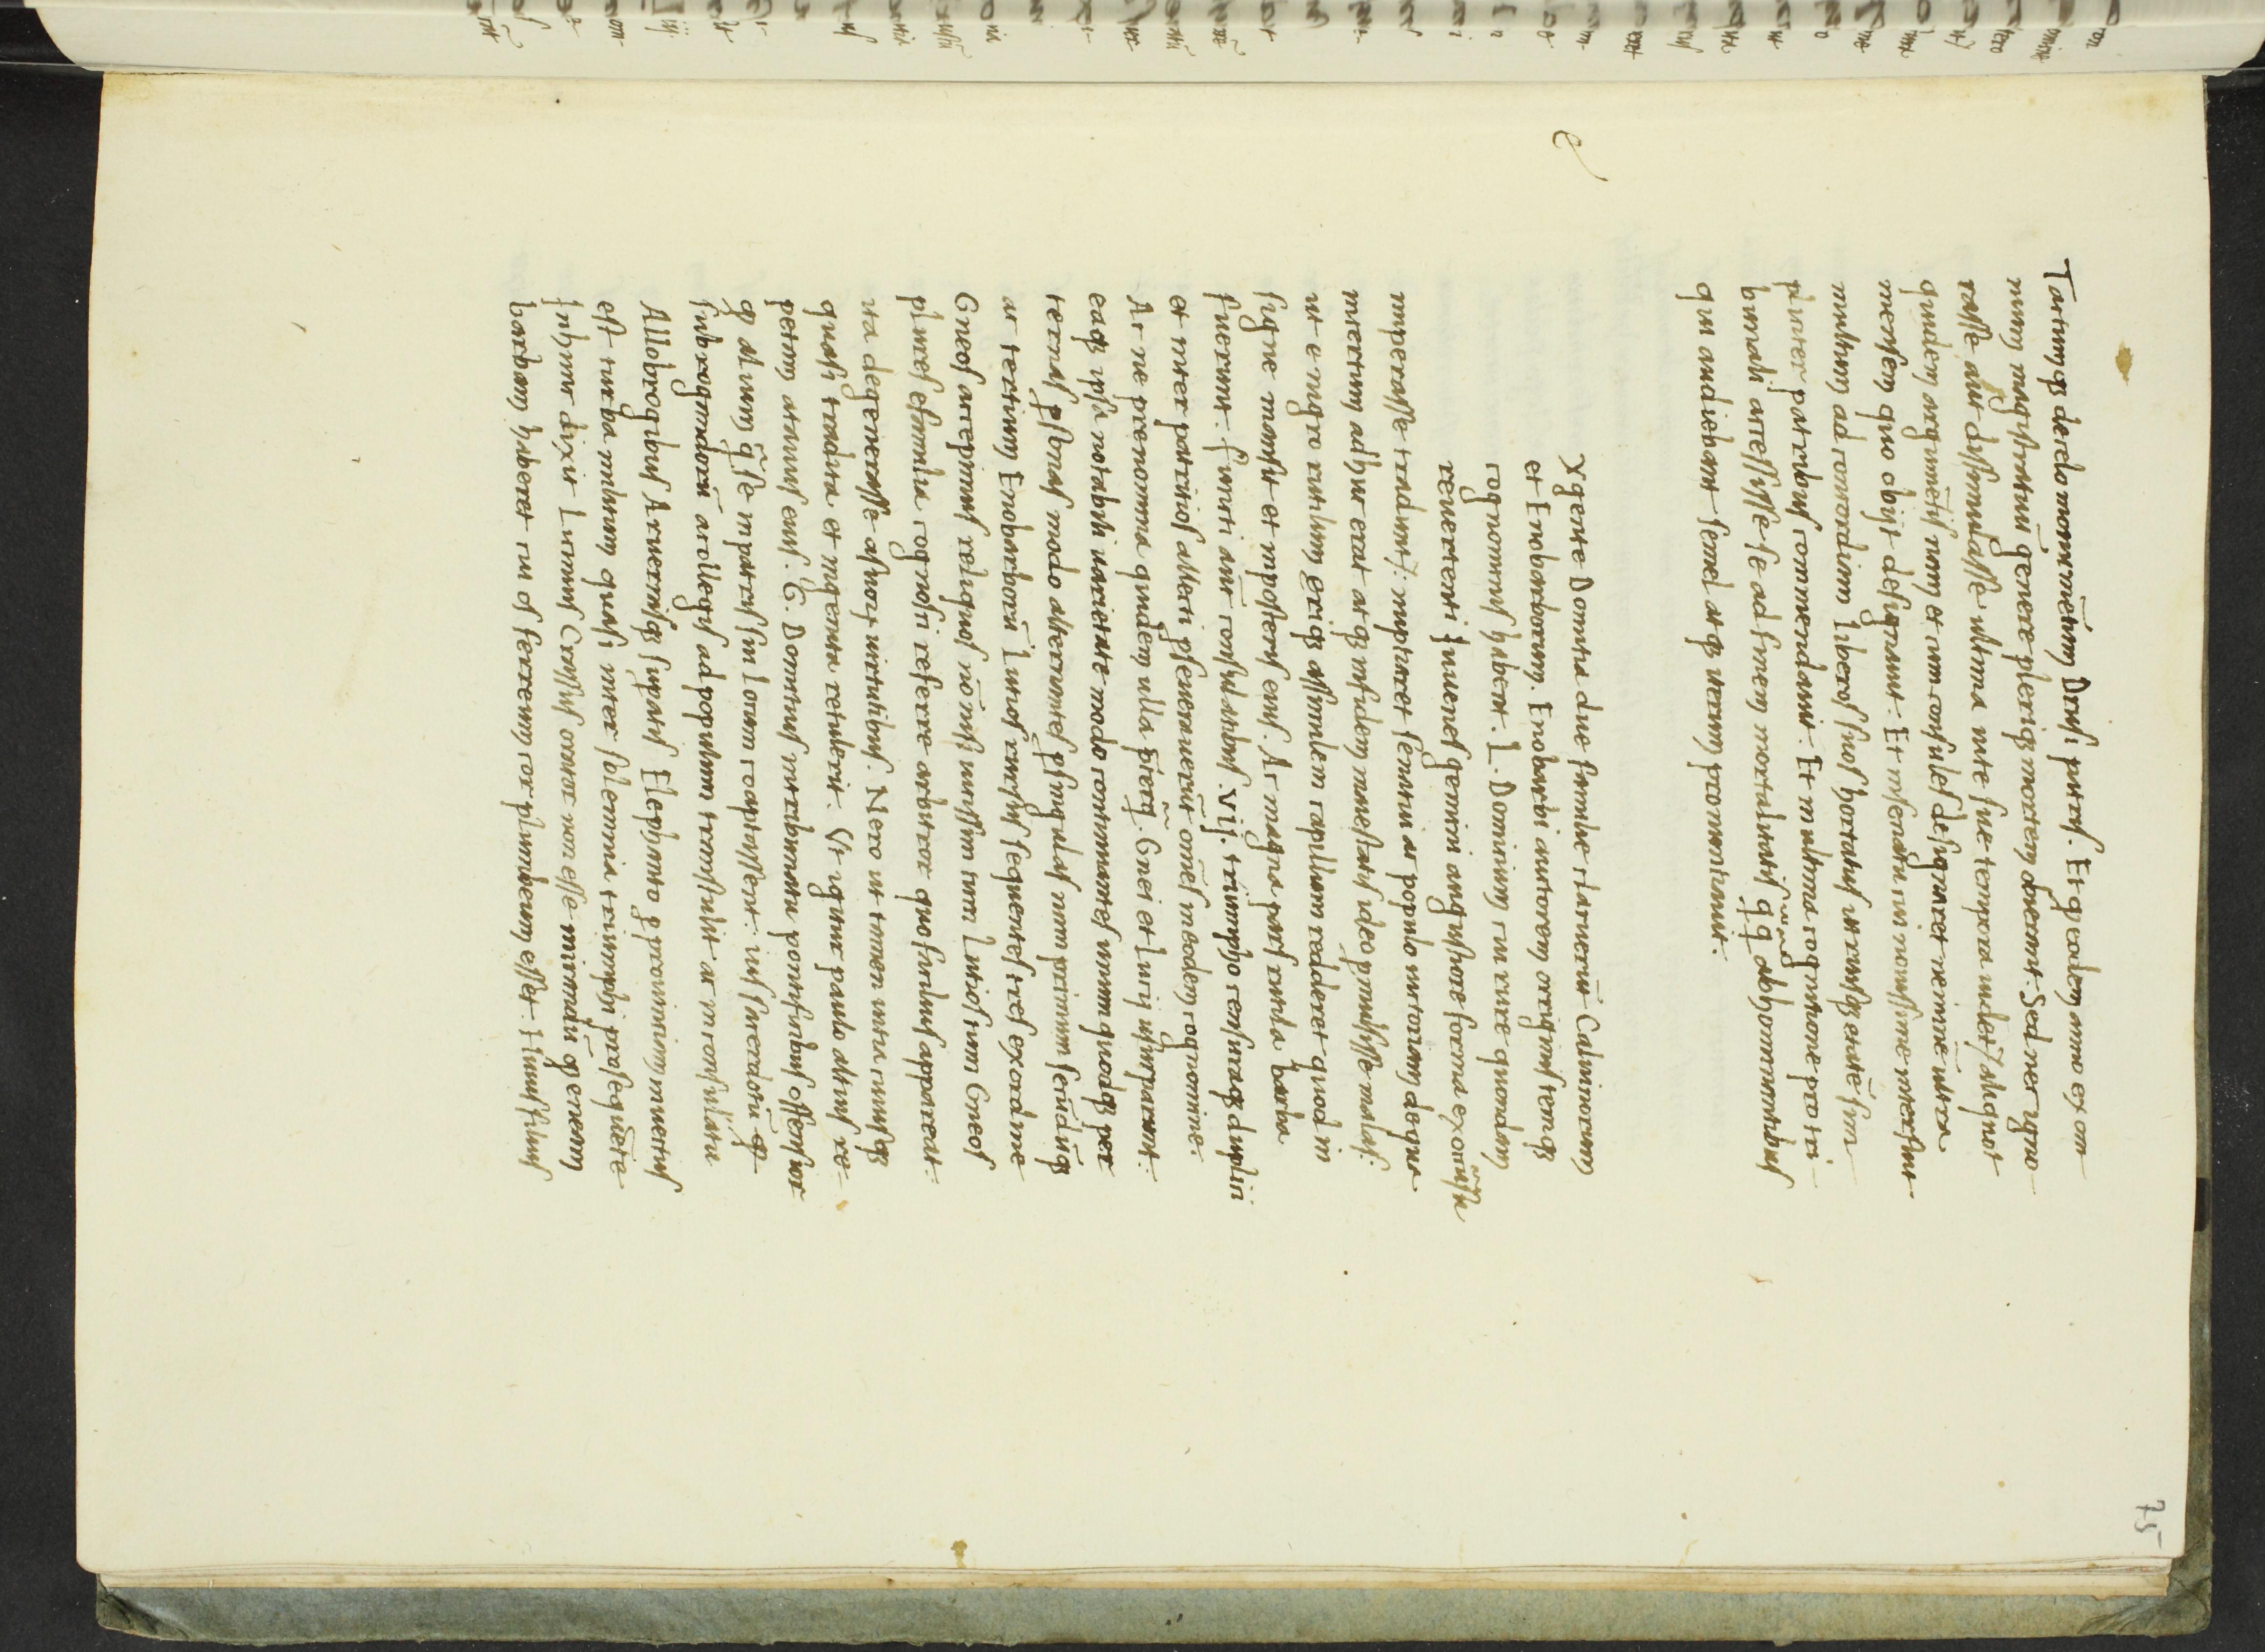 Tactumq; de celo monumẽtum Drusi patris. Et q eodem anno ex om
nium magistratuũ genere pleriq; mortem obierant. Sed nec igno
rasse aut dissimulasse ultima uite sue tempora uidet² aliquot
quidem argumẽtis nam et cum consules designaret neminẽ ultra
mensem quo obijt designauit. Et in senatu cui nouissime interfuit
multum ad concordiam liberos suos hortatus utriusq; etatẽ sup
pliciter patribus commendauit. Et in ultima cognitione pro tri-
bunali accessisse se ad finem mortalitatis q̃q̃ abhominantibus
qui audiebant semel atq; iterum pronuntiauit.
e
X gente Domitia due familie claruerũt Caluinorum
et Enobarborum. Enobarbi autorem originis itemq;
cognominis habent. L. Domitium cui rure quondam
reuertenti Iuuenes gemini augustiore forma ex occursu
imperasse tradunt²: nuptiaret senatui ac populo uictoriam de qua
incertum adhuc erat atq; in fidem maiestatis ideo pmulsisse malas:
ut e nigro rutilum eriq; assimilem capillum redderet quod in
signe mansit et in posteris eius. Ac magna pars rutila barba
fuerunt. Functi aũt consulatibus .vij. triumpho censuraq; duplici
et inter patritios allecti pseuerauerũt om̃es in eodem cognomine.
Ac ne prenomina quidem ulla p̃terq̃. Gnei et Lucij usurparunt:
eaq; ipsa notabili uarietate modo continuantes unum quodq; per
ternas psonas modo alternantes p singulas nam primum secũdũq;
ac tertium Enobarborũ Lucios rursus sequentes tres ex ordine
Gneos accepimus reliquos nõ nisi uicissim tum Lucios tum Gneos
plures e familia cognosci referre arbitror quo facilius appareat
ita degenerasse a suoꝝ uirtutibus. Nero ut tamen uitia cuiusq;
quasi tradita et ingenita retulerit. Vt igitur paulo altius re-
petam atauus eius. G. Domitius in tribunatu pontificibus offensior
q alium q̃ se in patris sui locum cooptassent: ius sacerdotũ
subrogandorũ a collegis ad populum transtulit at in consulatu
Allobrogibus Aruernisq; supatis Elephanto p prouintiam inuectus
est turba militum quasi inter solennia triumphi prosequẽte
In hunc dixit Licinius Crassus orator non esse mirandũ q eneam
barbam haberet cui os ferreum cor plumbeum esset. Huius filius
75